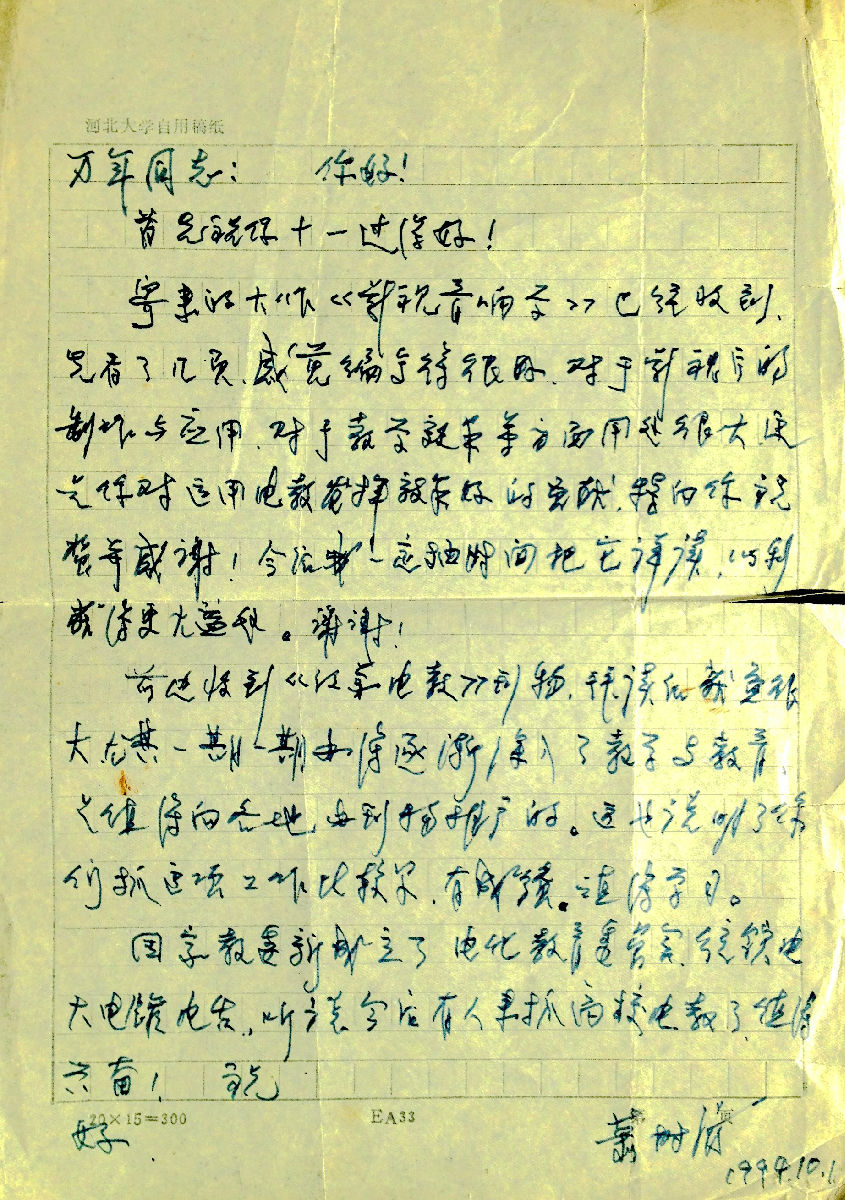 河北大学自用稿纸
万年同志： 你好！
首先祝你十一过得好！
寄来的大作《影视音响学》已经收到，
先看了几页，感觉编写得很好，对于影视片的
制作与应用，对于教学效果等方面用处很大，这
是你对运用电教发挥效果好的贡献！特向你祝
贺并感谢！今后我一定抽时间把它详读，以利
获得更大益处。谢谢！
前也收到《江苏电教》刊物，拜读后获益很
大，尤其一期一期办得逐渐深入了教学与教育，
是值得向各地办刊物推广的。这也说明了你
们抓这项工作比较早，有成绩。值得学习。
国家教委新成立了电化教育委员会，统领电
大电馆电台，听说今后有人来抓高校电教了，值得
兴奋！ 祝
好
20×15=300
EA33
页
萧树滋
1994.10.1